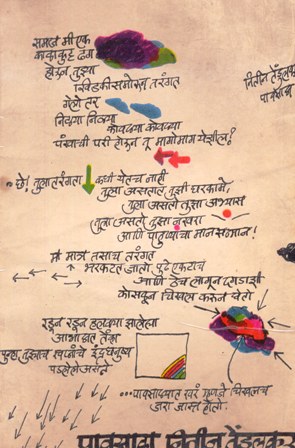 समजा मी एक
काळाकुट्ट ढग
होऊन तुझ्या
खिडकीसमोरून तरंगत
गेलो तर
निळ्या निळ्या
कोवळ्या कोवळ्या
पंखांची परी होऊन तू मागोमाग येशील?
छे! तुला तरंगता कधी येतच नाही
तुला असतात तुझी घरकामे,
तुला असतो तुझा अभ्यास
तुला असतो तुझा नखरा
आणि चारचौघांचा मानसन्मान!
मी मात्र तसाच तरंगत
भरकटत जातो दूर एकटाच
आणि ठेच लागून दगडाशी
कोसळून चिखल करून घेतो
रडून रडून हलक्या झालेल्या
आभाळात तेव्हा
पुन्हा तुझ्याच स्वप्नांचे इंद्रधनुष्य
पडलेले असते
...पावसाळ्यात खरं म्हणजे चिखलच
जरा जास्त होतो.
नितीन तेंडुलकर
पावसाळा नितीन तेंडुलकर